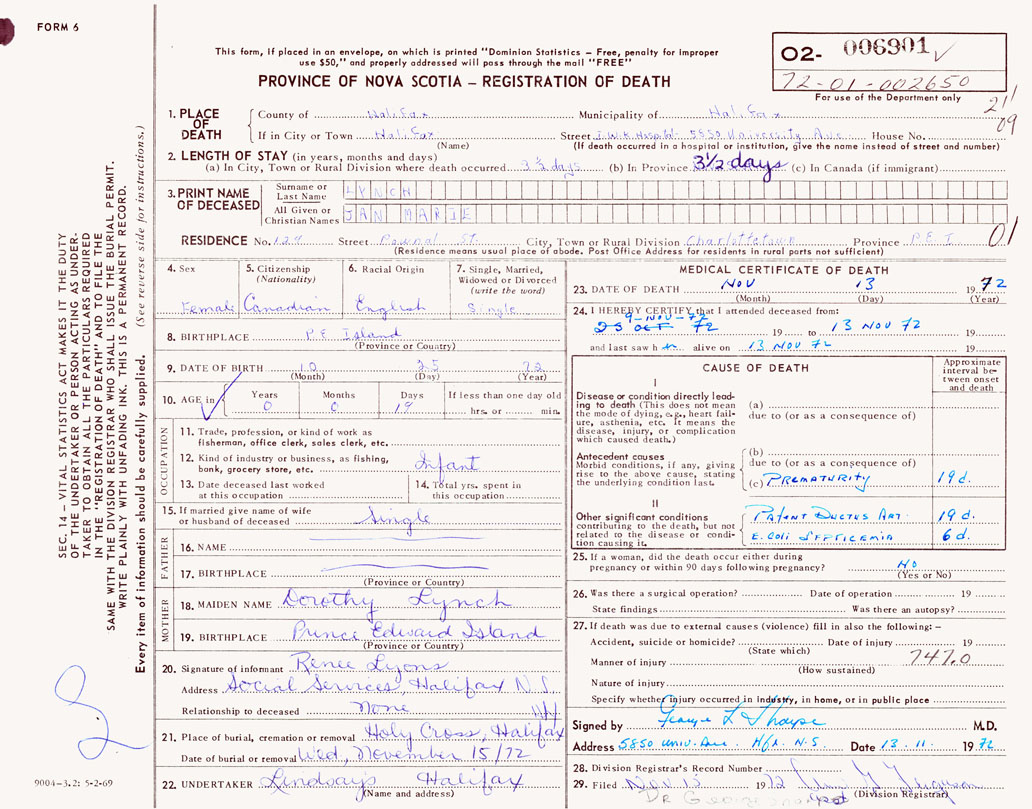 FORM 6
This form, if placed in an envelope, on which is printed "Dominion Statistics – Free, penalty for improper
use $50," and properly addressed will pass through the mail "FREE"
PROVINCE OF NOVA SCOTIA – REGISTRATION OF DEATH
02- 006901
72-01-002650
For use of the Department only
211
09
1. PLACE OF DEATH
County of Halifax Municipality of Halifax
If in City or Town Halifax Street I.W.K Hospital 5850 University Ave House No.
(Name) (If death occurred in a hospital or institution, give the name instead of street and number)
2. LENGTH OF STAY (in years, months and days)
(a) In City, Town or Rural Division where death occurred 3 ½ days (b) In Province 3½ days (c) In Canada (if immigrant)
3. PRINT NAME OF DECEASED
Surname or Last Name LYNCH
All Given or Christian Names JAN MARIE
RESIDENCE No. 129 Street Pownal St. City, Town or Rural Division Charlottetown Province P.E.I.
01
(Residence means usual place of abode. Post Office Address for residents in rural parts not sufficient)
4. Sex Female
5. Citizenship (Nationality) Canadian
6. Racial Origin English
7. Single, Married, Widowed or Divorced (write the word) Single
8. BIRTHPLACE P.E. Island
(Province or Country)
9. DATE OF BIRTH 10 25 72
(Month) (Day) (Year)
10. AGE in Years 0 Months 0 Days 19 If less than one day old
hrs. or min.
OCCUPATION
11. Trade, profession, or kind of work as
fisherman, office clerk, sales clerk, etc.
12. Kind of industry or business, as fishing,
bank, grocery store, etc. Infant
13. Date deceased last worked
at this occupation
14. Total yrs. spent in
this occupation
15. If married give name of wife
or husband of deceased Single
FATHER
16. NAME
17. BIRTHPLACE
(Province or Country)
MOTHER
18. MAIDEN NAME Dorothy Lynch
19. BIRTHPLACE Prince Edward Island
(Province or Country)
20. Signature of informant Renee Lyons
Address Social Services, Halifax N.S.
Relationship to deceased None
21. Place of burial, cremation or removal Holy Cross, Halifax
Date of burial or removal Wed, November 15/72
22. UNDERTAKER Lindsay's Halifax
(Name and address)
MEDICAL CERTIFICATE OF DEATH
23. DATE OF DEATH Nov 13 1972
(Month) (Day) (Year)
24. I HEREBY CERTIFY that I attended deceased from:
9-NOV-72
25 OCT 72 19 to 13 NOV 72 19
and last saw h er alive on 13 NOV 72 19
CAUSE OF DEATH
Approximate interval between onset and death
I
Disease or condition directly leading to death (This does not mean the mode of dying, e.g., heart failure, asthenia, etc. It means the disease, injury, or complication which caused death.)
(a)
due to (or as a consequence of)
Antecedent causes
Morbid conditions, if any, giving rise to the above cause, stating the underlying condition last.
(b)
due to (or as a consequence of)
(c) PREMATURITY 19 d.
II
Other significant conditions
contributing to the death, but not related to the disease or condition causing it.
PATENT DUCTUS ART. 19 d.
E. COLI SEPTICEMIA 6 d.
25. If a woman, did the death occur either during
pregnancy or within 90 days following pregnancy? NO
(Yes or No)
26. Was there a surgical operation? Date of operation 19
State findings Was there an autopsy?
27. If death was due to external causes (violence) fill in also the following: –
Accident, suicide or homicide? Date of injury 19
(State which)
Manner of injury 747.0
(How sustained)
Nature of injury
Specify whether injury occurred in industry, in home, or in public place
Signed by George L Sharpe M.D.
Address 5850 Univ. Ave. Hfx. N.S Date 13.11. 1972
28. Division Registrar's Record Number
29. Filed Nov 15 1972
(Division Registrar)
Dr George
SEC. 14 – VITAL STATISTICS ACT MAKES IT THE DUTY
OF THE UNDERTAKER OR PERSON ACTING AS UNDER-
TAKER TO OBTAIN ALL THE PARTICULARS REQUIRED
IN THE "REGISTRATION OF DEATH" AND TO FILE THE
SAME WITH THE DIVISION REGISTRAR WHO SHALL ISSUE THE BURIAL PERMIT.
WRITE PLAINLY WITH UNFADING INK. THIS IS A PERMANENT RECORD.
Every item of information should be carefully supplied. (See reverse side for instructions.)
9004-3.2: 5-2-69